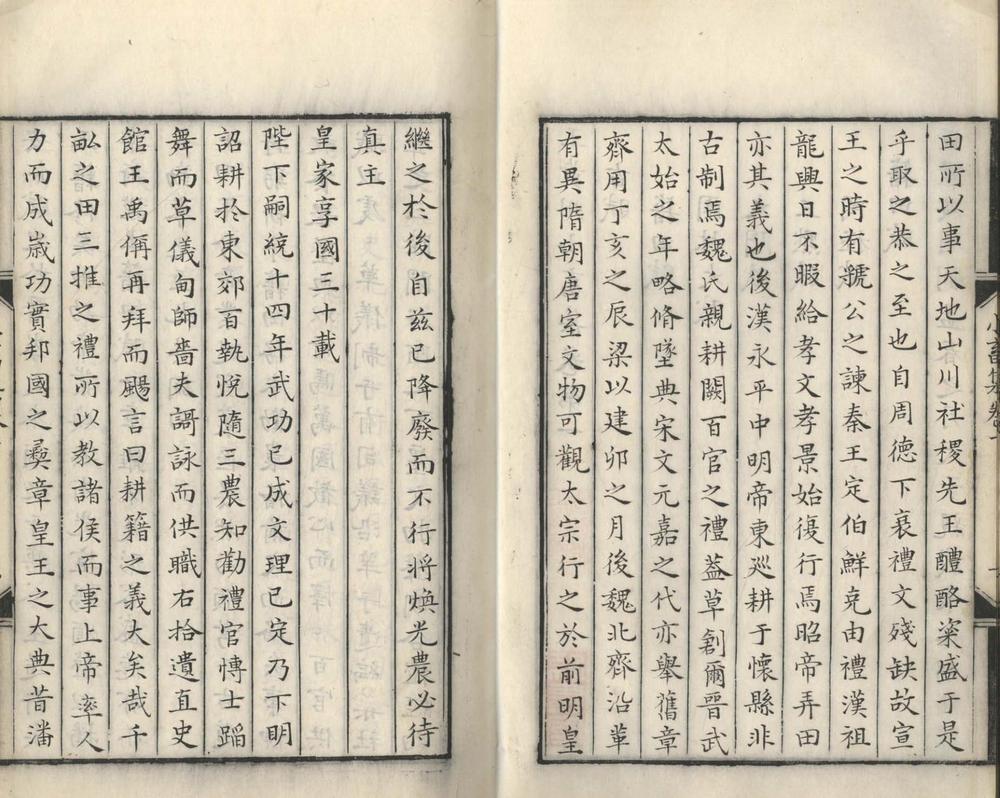 田所以事天地山川社稷先王醴酪粢盛于是
乎取之恭之至也自周德下衰禮文殘缺故宣
王之時有虢公之諫秦王定伯鮮克由禮漢祖
龍興日不暇給孝文孝景始復行焉昭帝弄田
亦其義也後漢永平中明帝東巡耕于懷縣非
古制焉魏氏親耕闕百官之禮蓋草創爾晉武
太始之年略脩墜典宋文元嘉之代亦舉舊章
齊用丁亥之辰梁以建卯之月後魏北齊沿革
有異隋朝唐室文物可觀太宗行之於前明皇
繼之於後自茲已降廢而不行將煥光農必待
真主
皇家享國三十載
陛下嗣統十四年武功已成文理已定乃下明
詔耕於東郊百執悅隨三農知勸禮官愽士蹈
舞而草儀甸師嗇夫謌詠而供職右拾遺直史
館王禹偁再拜而颺言曰耕籍之義大矣哉千
畝之田三推之禮所以教諸侯而事上帝率人
力而成嵗功實邦國之彜章皇王之大典昔潘
小畜集卷一